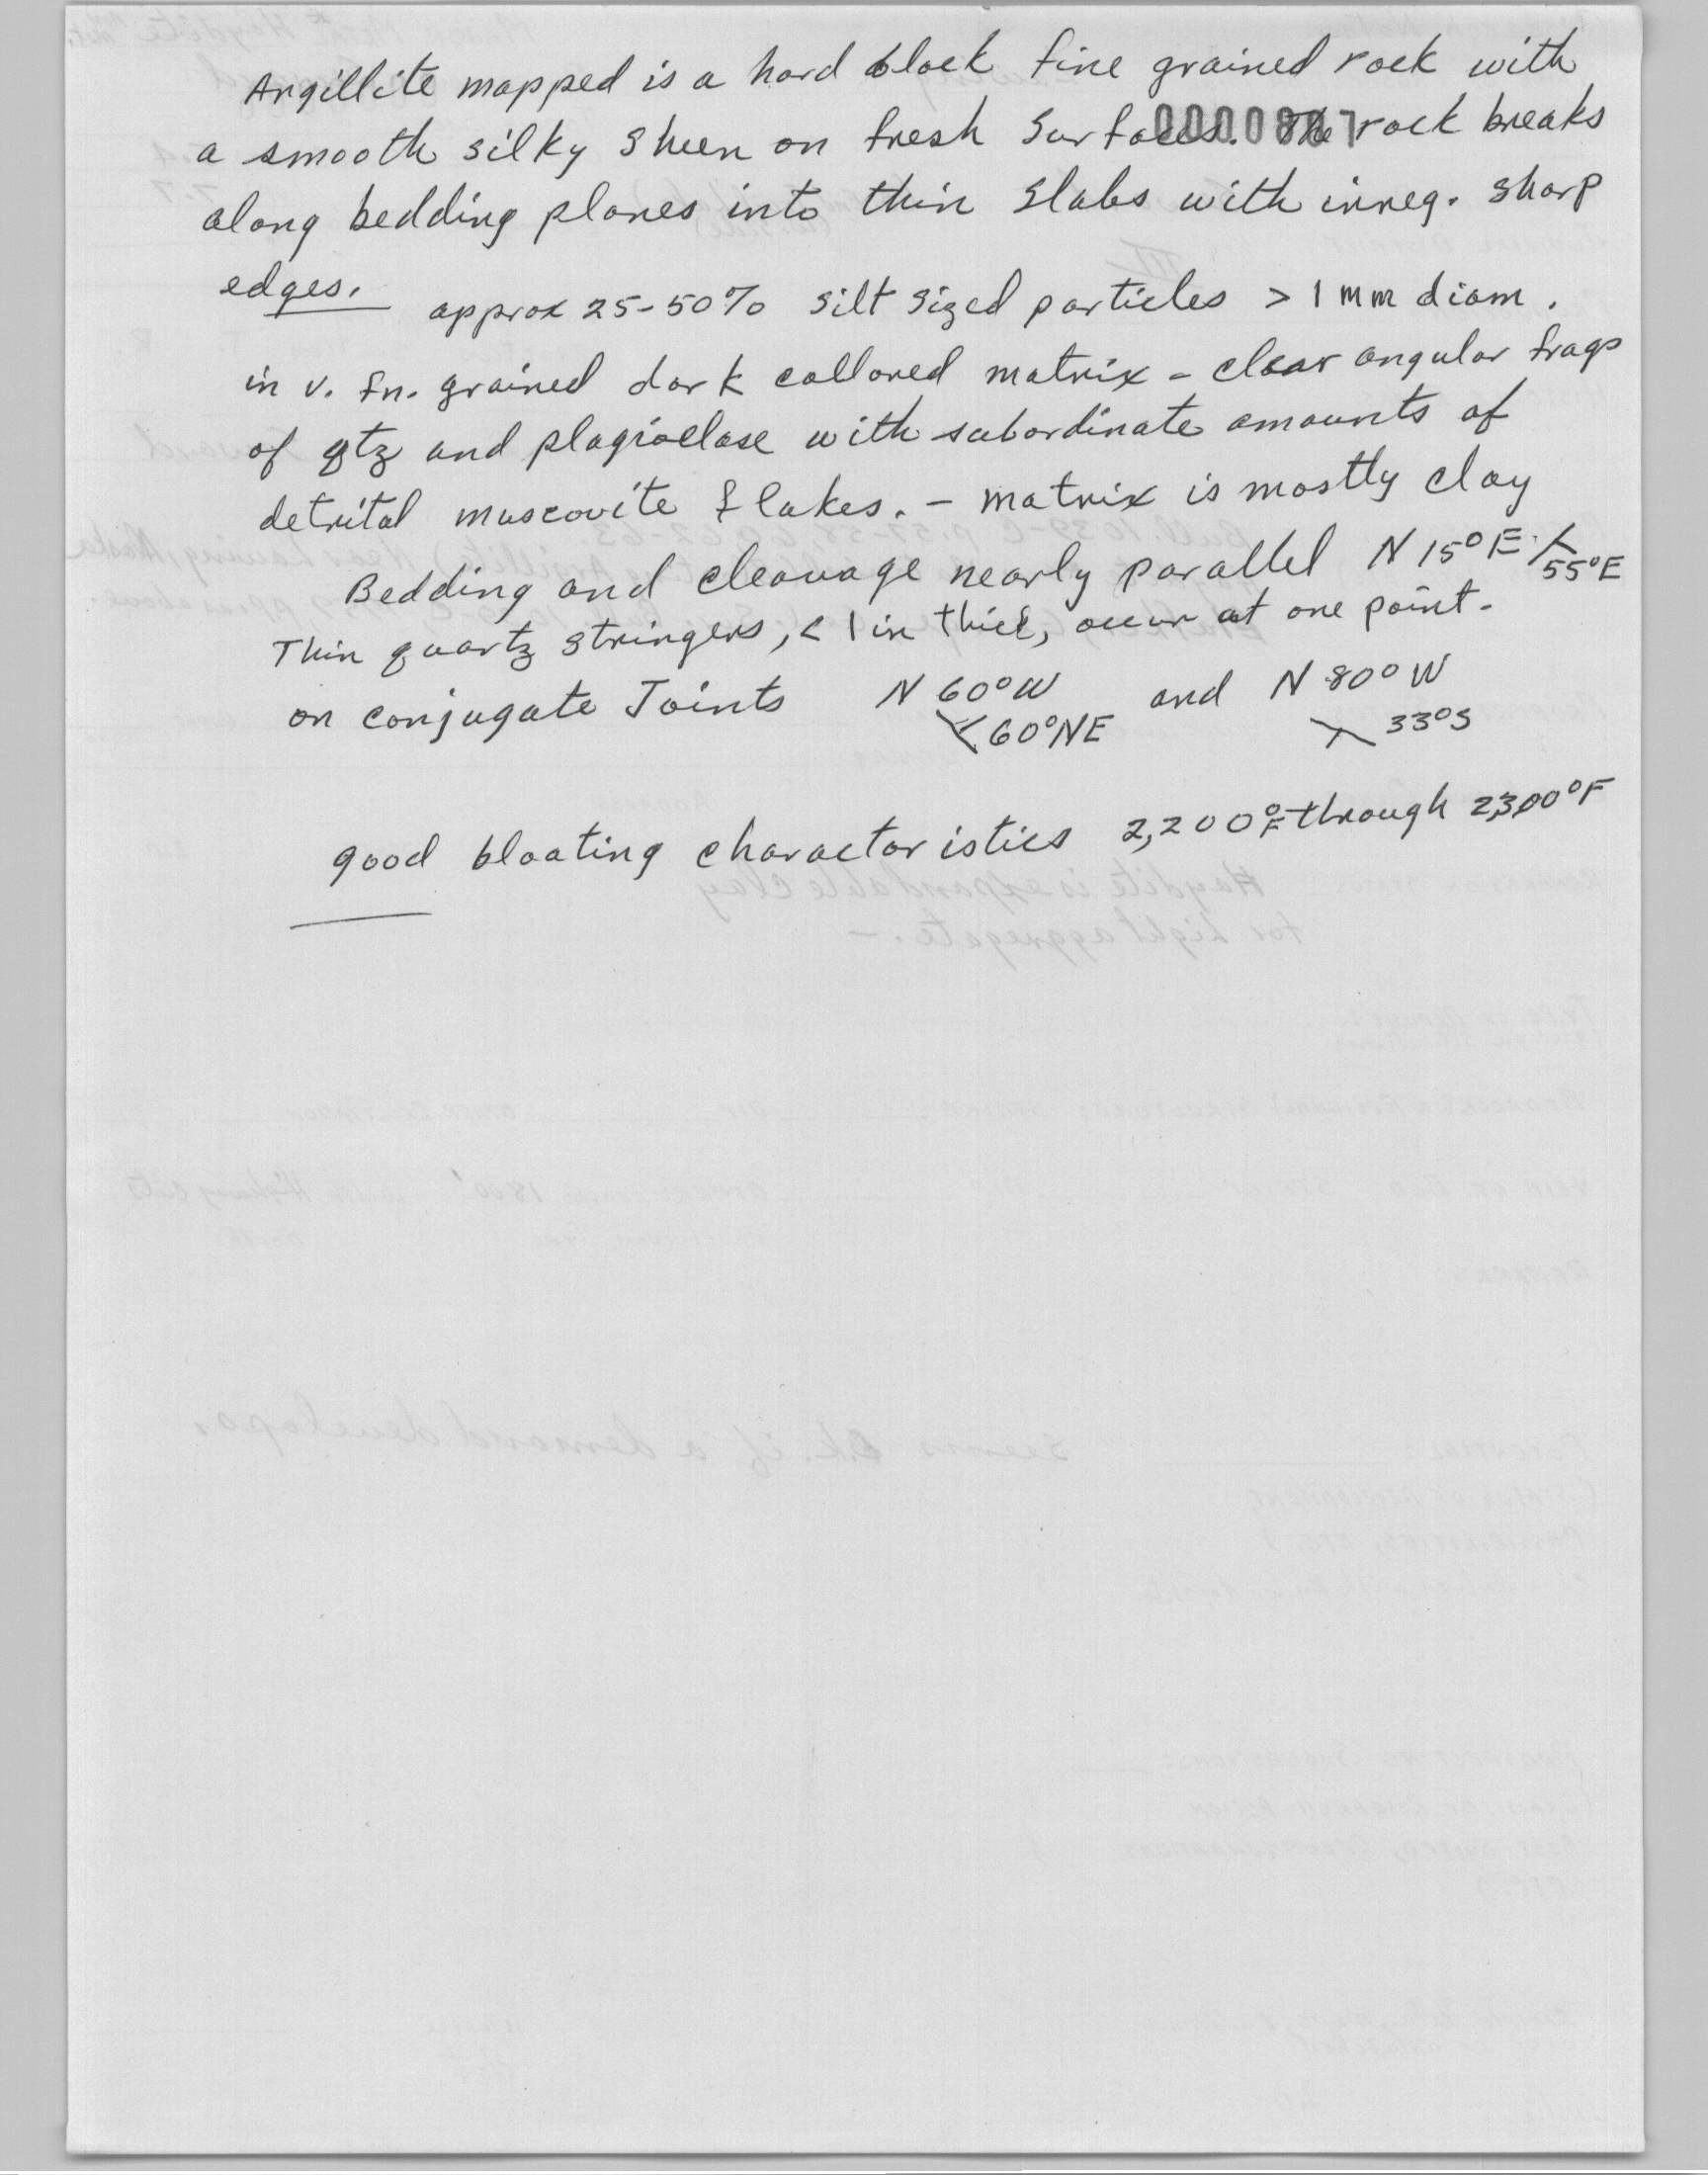 Argillite mapped is a hard black fine grained rock with
a smooth silky sheen on fresh surfaces. The rock breaks
0000807
along bedding planes into thin slabs with irreg. sharp
edges. approx 25-50% silt sized particles > 1 mm diam.
in v. fn. grained dark collored matrix - clear angular frags
of qtz and plagioclase with subordinate amounts of
detrital muscovite flakes. - matrix is mostly clay
Bedding and cleavage nearly parallel N 15° E. 55°E
Thin quartz stringers, < 1 in thick, occur at one point.
on conjugate Joints N 60° W and N 80° W
60°NE 33°S
good bloating characteristics 2,200°F through 2,300°F
Haydite is expandable clay
for light aggregate. -
seems o.k. if a demand develops.